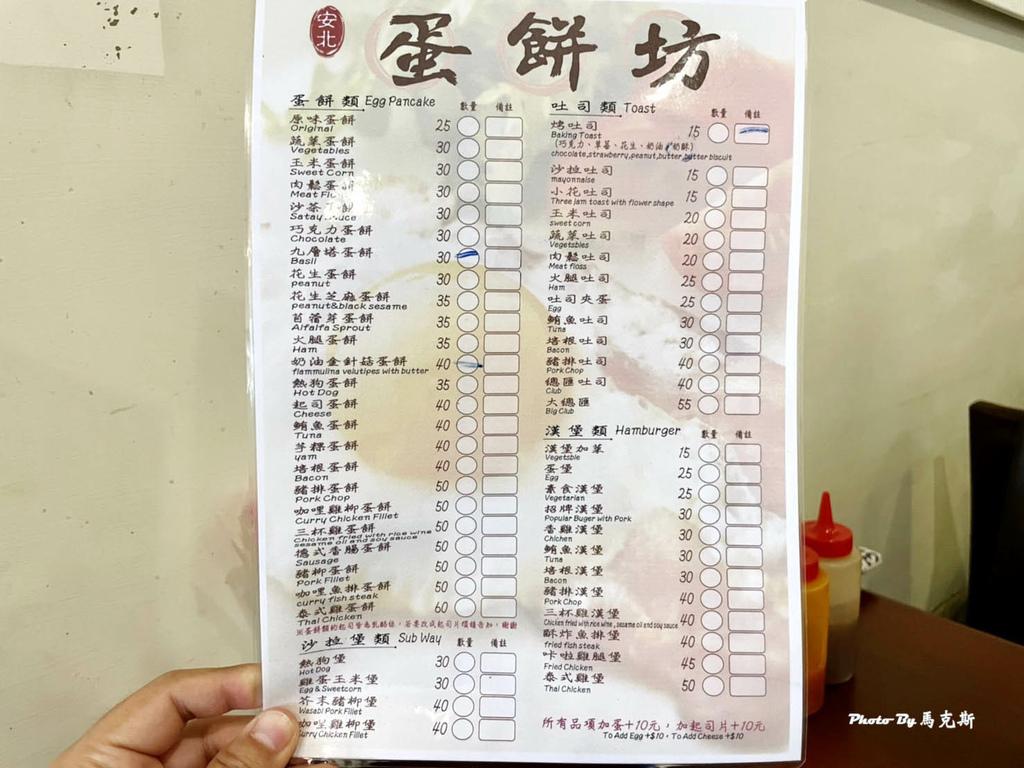 安北
蛋餅坊
蛋餅類 Egg Pancake 數量 備註
原味蛋餅 25
Original
蔬菜蛋餅 30
Vegetables
玉米蛋餅 30
Sweet Corn
肉鬆蛋餅 30
Meat Flo
沙茶蛋餅 30
Satay Sauce
巧克力蛋餅 30
Chocolate
九層塔蛋餅 30
Basil
花生蛋餅 30
peanut
花生芝麻蛋餅 35
peanut&black sesame
苜蓿芽蛋餅 35
Alfalfa Sprout
火腿蛋餅 35
Ham
奶油金針菇蛋餅 40
flammulina velutipes with butter
熱狗蛋餅 35
Hot Dog
起司蛋餅 40
Cheese
鮪魚蛋餅 40
Tuna
芋粿蛋餅 40
yam
培根蛋餅 40
Bacon
豬排蛋餅 50
Pork Chop
咖哩雞柳蛋餅 50
Curry Chicken Fillet
三杯雞蛋餅 50
Chicken fried with rice wine
sesame oil and soy sauce
德式香腸蛋餅 50
Sausage
豬柳蛋餅 50
Pork Fillet
咖哩魚排蛋餅 50
curry fish steak
泰式雞蛋餅 60
Thai Chicken
※蛋餅類的起司皆為乳酪絲，若要改成起司片煩請告知，謝謝
沙拉堡類 Sub Way 數量 備註
熱狗堡 30
Hot Dog
雞蛋玉米堡 30
Egg & Sweetcorn
芥末豬柳堡 40
Wasabi Pork Fillet
咖哩雞柳堡 40
Curry Chicken Fillet
吐司類 Toast 數量 備註
烤吐司 15
Baking Toast
(巧克力、草莓、花生、奶油、奶酥)
chocolate,strawberry,peanut,butter,butter biscuit
沙拉吐司 15
mayonnaise
小花吐司 15
Three jam toast with flower shape
玉米吐司 20
sweet corn
蔬菜吐司 20
Vegetsbles
肉鬆吐司 20
Meat floss
火腿吐司 25
Ham
吐司夾蛋 25
Egg
鮪魚吐司 30
Tuna
培根吐司 30
Bacon
豬排吐司 40
Pork Chop
總匯吐司 40
Club
大總匯 55
Big Club
漢堡類 Hamburger 數量 備註
漢堡加菜 15
Vegetsble
蛋堡 25
Egg
素食漢堡 25
Vegetarian
招牌漢堡 30
Popular Buger with Pork
香雞漢堡 30
Chichen
鮪魚漢堡 30
Tuna
培根漢堡 30
Bacon
豬排漢堡 40
Pork Chop
三杯雞漢堡 40
Chicken fried with rice wine , sesame oil and soy sauce
酥炸魚排堡 40
fried fish steak
咔啦雞腿堡 45
Fried Chicken
泰式雞堡 50
Thai Chicken
所有品項加蛋+10元，加起司片+10元
To Add Egg +$10, To Add Cheese +$10
Photo By 馬克斯